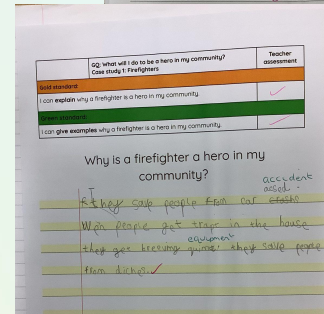 GQ: What will I do to be a hero in my community?
Case study 1: Firefighters
Teacher assessment
Gold standard:
I can explain why a firefighter is a hero in my community.
Green standard:
I can give examples why a firefighter is a hero in my community.
Why is a firefighter a hero in my community?
accident
they save people from car
Wen people get trap in the house
equipment
they get they save people
from